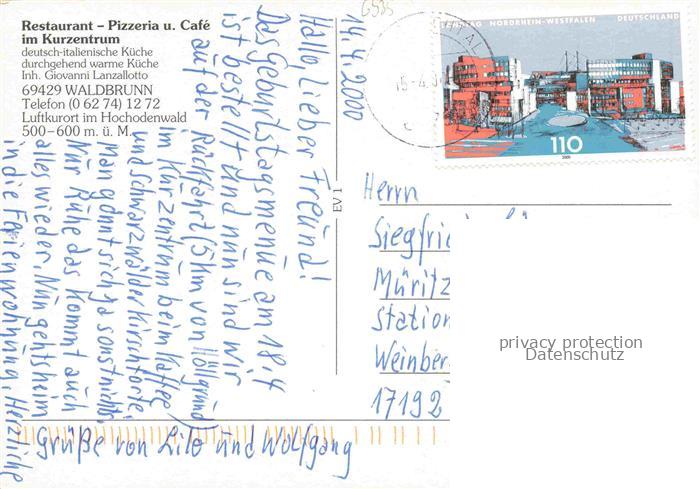 Restaurant – Pizzeria u. Café
im Kurzentrum
deutsch-italienische Küche
durchgehend warme Küche
Inh. Giovanni Lanzallotto
69429 WALDBRUNN
Telefon (0 62 74) 12 72
Luftkurort im Hochodenwald
500–600 m. ü. M.
14.4.2000
Hallo lieber Freund!
Das Geburtstagsmenüe am 18.4
ist bestellt und nun sind wir
auf der Rückfahrt (5km von Höllgrund)
im Kurzentrum beim Kaffee
und Schwarzwälder Kirschtorte.
Man gönnt sich ja sonst nichts.
Nur Ruhe das kommt auch
alles wieder. Nun gehts heim
in die Ferienwohnung. Herzliche
Grüße von Lilo und Wolfgang
EV 1
6535
NORDRHEIN-WESTFALEN DEUTSCHLAND
110
2000
Herrn
Siegfri
Müritz
Station
Weinber
17192
privacy protection
Datenschutz